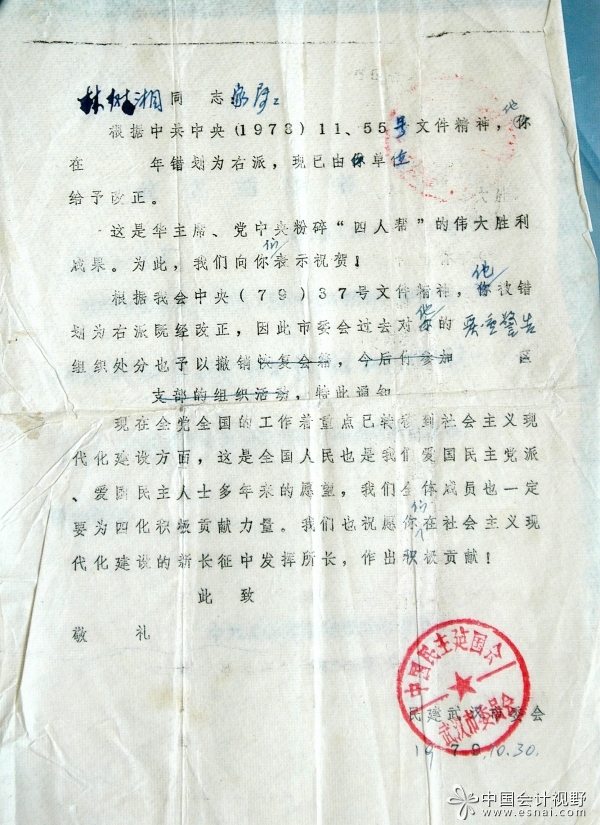 林树湘同 志家属:
根据中共中央(1978)11、55号文件精神，他
在 年错划为右派，现已由 单位
给予改正。
这是华主席、党中央粉碎“四人帮”的伟大胜利
成果。为此，我们向你们表示祝贺！
根据我会中央(79)37号文件精神，他被错
划为右派既经改正，因此市委会过去对他的严重警告
组织处分也予以撤销恢复会籍，今后你参加 区
支部的组织活动，特此通知
现在全党全国的工作着重点已转移到社会主义现
代化建设方面，这是全国人民也是我们爱国民主党派
、爱国民主人士多年来的愿望，我们全体成员也一定
要为四化积极贡献力量。我们也祝愿你们在社会主义现
代化建设的新长征中发挥所长，作出积极贡献！
此 致
敬 礼
中国民主建国会
武汉市委员会
民建武汉市委会
1979.10.30.
中国会计视野
www.esnai.com